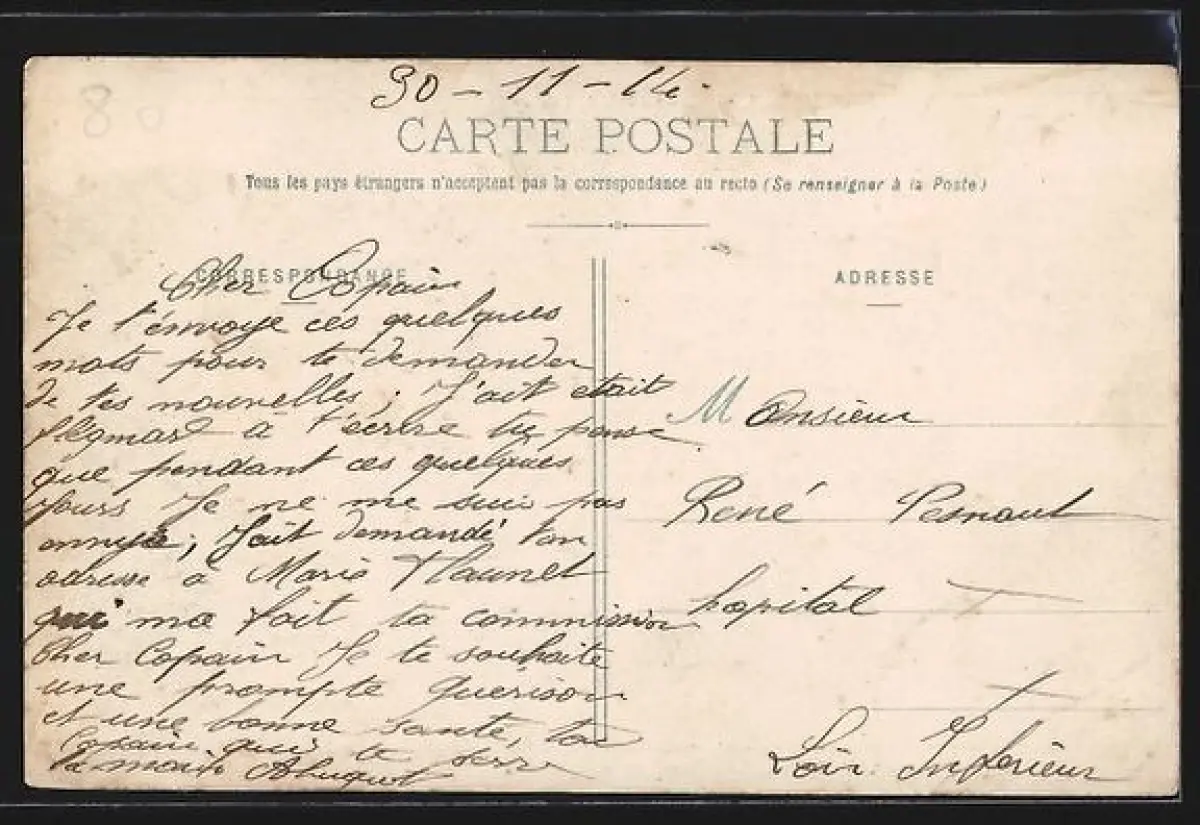 80
30-11-14.
CARTE POSTALE
Tous les pays étrangers n'acceptent pas la correspondance au recto (Se renseigner à la Poste)
CORRESPONDANCE
ADRESSE
Cher Copain
Je t'envoye ces quelques
mots pour te demander
de tes nouvelles; J'ait etait
flegmard à t'écrire tu pense
que pendant ces quelques
Jours Je ne me suis pas
; J'ait demandé ton
adresse a Marie
qui ma fait ta commission
Cher Copain Je te souhaite
une prompte Guerison
et une bonne Santé, ton
Copain qui te serre
la main
Monsieur
René
hopital
Loir Inferieur